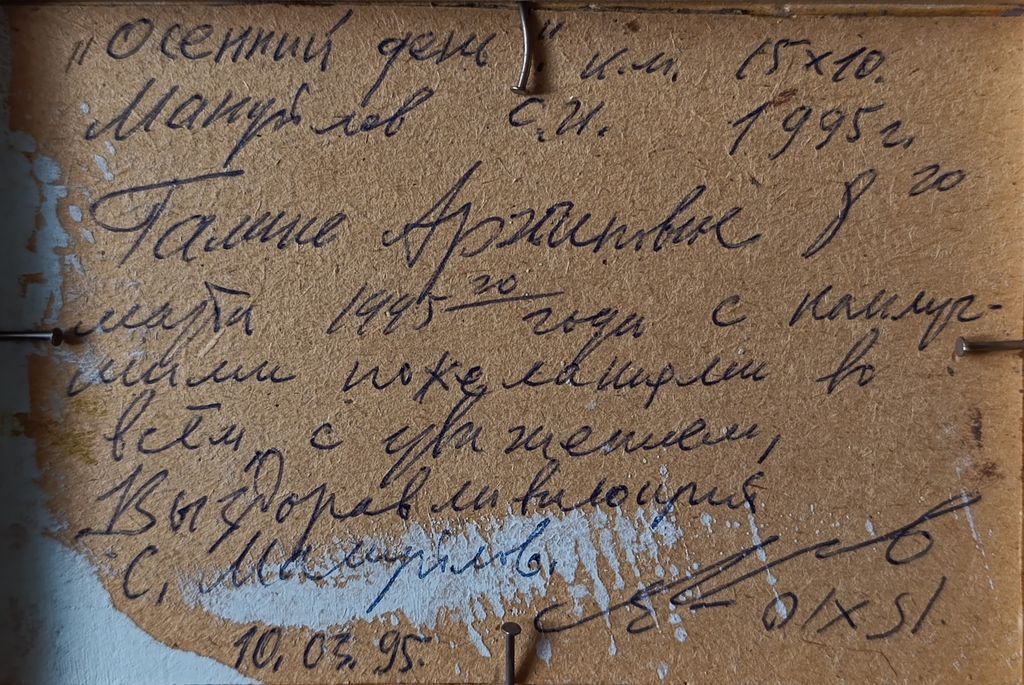 „Осенний день". к.м. 15х10.
Мануйлов С.И. 1995г.
Галине Архиповне 8го
марта 1995го года с наилуч-
шими пожеланиями во
всём, с уважением,
Выздоравливающий
С. Мануйлов.
10.03.95. 15х10